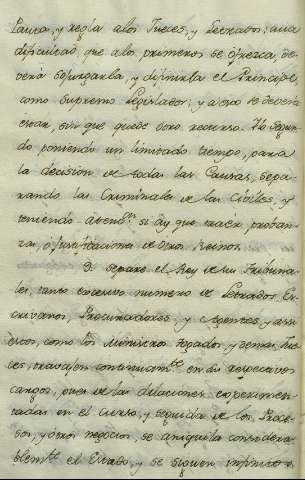 Pauta, y regla a los Jueces, y Letrados; cuia
dificultad, que a los primeros se ofrezca, de-
verá espurgarla, y difinirla el Principe,
como Supremo Legislador; y a eso se deverá
estar, sin que quede otro recurso. Lo segun-
do poniendo un limitado tiempo, para
la decision de todas las Causas, sepa-
rando las Criminales de las Civiles, y
teniendo atenn. si ay que traer, proban-
za, o justificaciones de otros Reinos.
3. separe el Rey de sus Tribuna-
les, tanto excesivo numero de Letrados, Es-
crivanos, Procuradores, y Agentes, y assi
estos, como los Ministros Togados, y demas Jue-
ces, travajen continuamte. en sus respectivos
cargos, pues de las dilaciones experimen-
tadas en el curso, y seguida de los Proce-
sos, y otros negocios, se aniquila considera-
blemte. el Estado, y se siguen infinitos